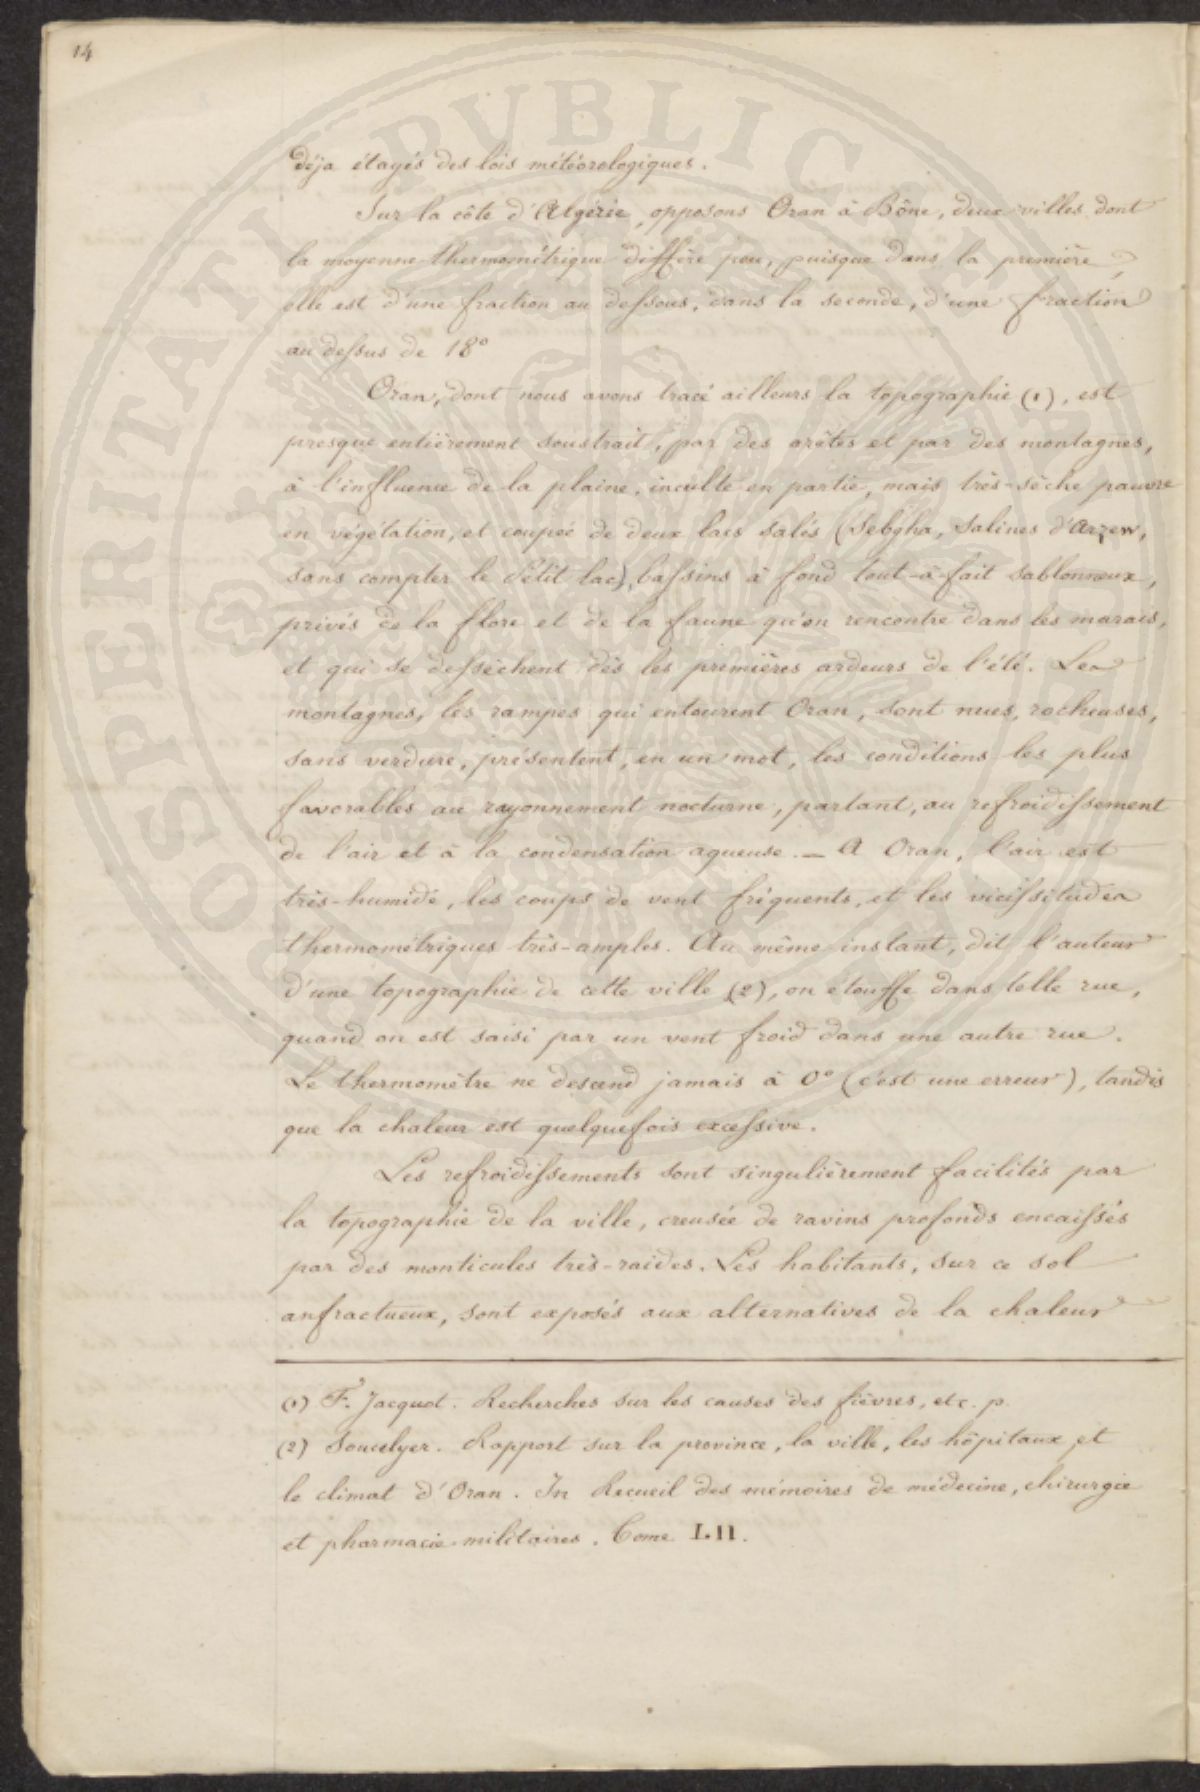 14
déja étayés des lois météorologiques.
Sur la côte d'Algérie, opposons Oran à Bône, deux villes dont
la moyenne thermométrique diffère peu, puisque dans la première,
elle est d'une fraction au dessous, dans la seconde, d'une fraction
au dessus de 18°
Oran, dont nous avons tracé ailleurs la topographie (1), est
presque entièrement soustrait, par des arêtes et par des montagnes,
à l'influence de la plaine, inculte en partie, mais très-sèche pauvre
en végétation, et coupée de deux lacs salés (Sebgha, Salines d'Arzew,
sans compter le Petit lac), bassins à fond tout-à-fait sablonneux,
privés de la flore et de la faune qu'on rencontre dans les marais,
et qui se dessèchent dès les premières ardeurs de l'été. Les
montagnes, les rampes qui entourent Oran, sont nues, rocheuses,
sans verdure, présentent, en un mot, les conditions les plus
favorables au rayonnement nocturne, partant, au refroidissement
de l'air et à la condensation aqueuse. — A Oran, l'air est
très-humide, les coups de vent fréquents, et les vicissitudes
thermométriques très-amples. Au même instant, dit l'auteur
d'une topographie de cette ville (2), on étouffe dans telle rue,
quand on est saisi par un vent froid dans une autre rue.
Le thermomètre ne descend jamais à 0° (c'est une erreur), tandis
que la chaleur est quelquefois excessive.
Les refroidissements sont singulièrement facilités par
la topographie de la ville, creusée de ravins profonds encaissés
par des monticules très-raides. Les habitants, sur ce sol
anfractueux, sont exposés aux alternatives de la chaleur
(1) F. Jacquot. Recherches sur les causes des fièvres, etc. p.
(2) Soucelyer. Rapport sur la province, la ville, les hôpitaux et
le climat d'Oran. In Recueil des mémoires de médecine, chirurgie
et pharmacie militaires. Tome LII.
PROSPERITATI PUBLICAE